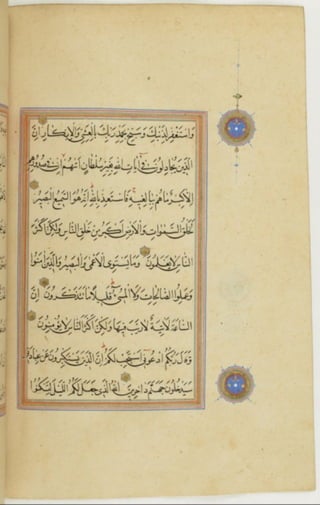 واستغفر لذنبك وسبح بحمد ربك بالعشي والإبكار إن
الذين يجادلون في آيات الله بغير سلطان أتاهم إن في صدورهم
إلا كبر ما هم ببالغيه فاستعذ بالله إنه هو السميع البصير
لخلق السموات والأرض أكبر من خلق الناس ولكن أكثر
الناس لا يعلمون وما يستوي الأعمى والبصير والذين آمنوا
وعملوا الصالحات ولا المسيء قليلا ما تتذكرون إن
الساعة لآتية لا ريب فيها ولكن أكثر الناس لا يؤمنون
وقال ربكم ادعوني أستجب لكم إن الذين يستكبرون عن عبادتي
سيدخلون جهنم داخرين الله الذي جعل لكم الليل لتسكنوا